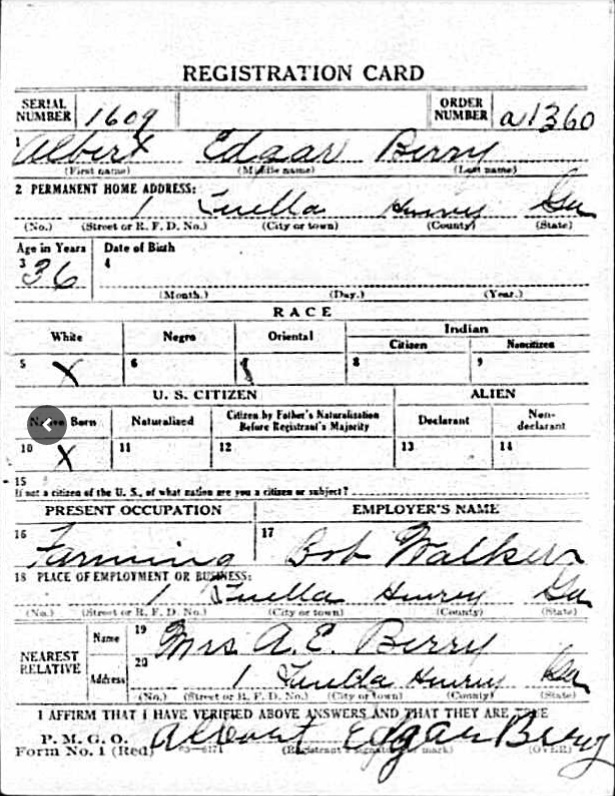 REGISTRATION CARD
SERIAL NUMBER 1609 ORDER NUMBER a1360
1 Albert Edgar Berry
(First name) (Middle name) (Last name)
2 PERMANENT HOME ADDRESS:
1 Luella Henry Ga
(No.) (Street or R. F. D. No.) (City or town) (County) (State)
Age in Years Date of Birth
3 36 4
(Month.) (Day.) (Year.)
RACE
White Negro Oriental Indian
Citizen Noncitizen
5 X 6 7 8 9
U. S. CITIZEN ALIEN
Native Born Naturalized Citizen by Father's Naturalization Before Registrant's Majority Declarant Non-declarant
10 X 11 12 13 14
15
If not a citizen of the U. S., of what nation are you a citizen or subject?
PRESENT OCCUPATION EMPLOYER'S NAME
16 Farming 17 Bob Walker
18 PLACE OF EMPLOYMENT OR BUSINESS:
1 Luella Henry Ga
(No.) (Street or R. F. D. No.) (City or town) (County) (State)
NEAREST RELATIVE Name 19 Mrs A. E. Berry
Address 20 1 Luella Henry Ga
(No.) (Street or R. F. D. No.) (City or town) (County) (State)
I AFFIRM THAT I HAVE VERIFIED ABOVE ANSWERS AND THAT THEY ARE TRUE
P. M. G. O.
Form No. 1 (Red) Albert Edgar Berry
(Registrant's signature or mark) (OVER)